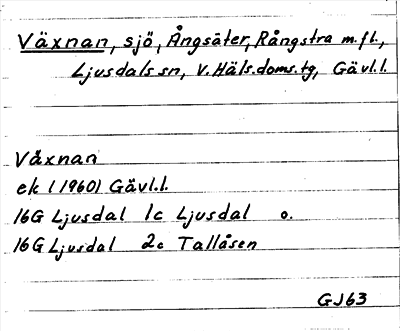 Växnan, sjö, Ångsäter, Rångstra m.fl.,
Ljusdals sn, V. Häls. doms. tg, Gävl.l.
Växnan
ek (1960) Gävl.l.
16G Ljusdal 1c Ljusdal o.
16G Ljusdal 2c Tallåsen
GJ63